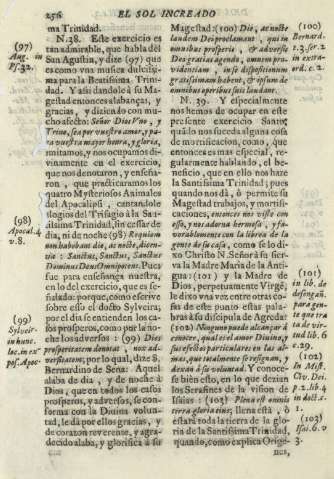 256 EL SOL INCREADO
ma Trinidad.
N.38. Este exercicio es
tan admirable, que habla del
San Agustin, y dize (97) que
es como vna musica dulcissi-
ma para la Beatissima Trini-
dad. Y assi dandole à su Ma-
gestad entonces alabanças, y
gracias, y diziendo con mu-
cho afecto: Señor Dios Vno, y
Trino, sea por vuestro amor, y pa-
ra vuestra mayor honra, y gloria,
imitamos, y nos ocupamos di-
vinamente en el exercicio,
que nos denotaron, y enseña-
ron, que practicàramos los
quatro Mysteriosos Animales
del Apocalipsi, cantandole
elogios del Trisagio à la San-
tissima Trinidad, sin cessar de
dia, ni de noche (98) Requiem
non habebant die, ac nocte, dicen-
tia: Sanctus, Sanctus, Sanctus
Dominus Deus Omnipotens. Pues
fue para enseñança nuestra,
en lo del exercicio, que es se-
ñalado: porque, como escrive
sobre esso el docto Sylveira,
por el dia se entienden los ca-
sos prosperos, como por la no-
che los adversos: (99) Dies
prosperitatem notat, nox ad-
versitatem; por lo qual, dize S.
Bernardino de Sena: Aquel
alaba de dia, y de noche à
Dios, que en todos los casos
prosperos, y adversos, se con-
forma con la Divina volun-
tad, le dà por ellos gracias, y
de corazon reverente, y agra-
decido alaba, y glorifica à su
(97)
Aug. in
Ps. 32.
(98)
Apocal. 4
v. 8.
(99)
Sylveir.
in hunc
loc. in ex-
pos. Apoc.
Magestad: (100) Die, ac nocte
laudem Dei proclamant, qui in
omnibus prosperis, & adversis
Deo gratias agendo, omnem pro-
videntiam, in ipsi dispositionum
gratissimam habent, & ipsum de
omnibus operibus suis laudant.
N. 39. Y especialmente
nos hemos de ocupar en este
presente exercicio Santo,
quando nos suceda alguna cosa
de mortificacion, como, que
entonces es mas especial, re-
gularmente hablando, el be-
neficio, que en ello nos haze
la Santissima Trinidad; pues
quando nos dà, ò permite su
Magestad trabajos, y mortifi-
caciones, entonces nos viste con
essa, y encadena hermosa, y fa-
vorablemente con la librea de la
gente de su casa, como se lo di-
xo Christo N. Señor à su sier-
va la Madre Maria de la Anti-
gua: (101) y la Madre de
Dios, perpetuamente Virgẽ,
lo dixo vna vez entre otras co-
sas de este punto estas pala-
bras à su discipula de Agreda:
(102) Ninguno puede alcançar à
conocer, qual es el amor Divino, y
sus efectos particulares en las al-
mas, que totalmente se resignan, y
dexan à su voluntad. Y conoce-
se bien esto, en lo que dezian
los Serafines de la vision de
Isaias: (103) Plena est omnis
terra gloria eius; llena està, ò
estarà toda la tierra de la glo-
ria de la Santissima Trinidad,
quando, como explica Orige-
nes,
(100)
Bernard.
t. 3. ser. 2
in extra-
ord. c. 2.
(101)
in lib. de
desengañ.
para gen-
te que tra-
ta de vir-
tud lib. 6
c. 29.
(102)
In Myst.
Civ. Dei.
p. 2. lib. 4
in doct. c.
1.
(103)
Isai. 6. v
3.